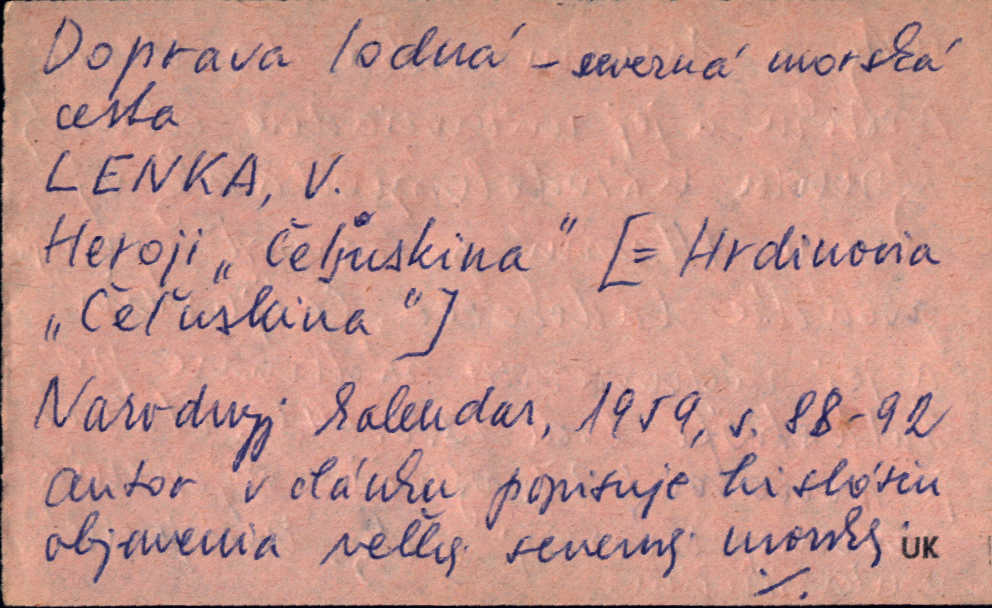 Doprava lodná – severná morská
cesta
LENKA, V.
Heroji „Čeljuskina" [= Hrdinovia
„Čeľuskina"]
Narodnyj kalendar, 1959, s. 88-92
autor v článku popisuje históriu
objavenia veľkej severnej morskej UK
./.